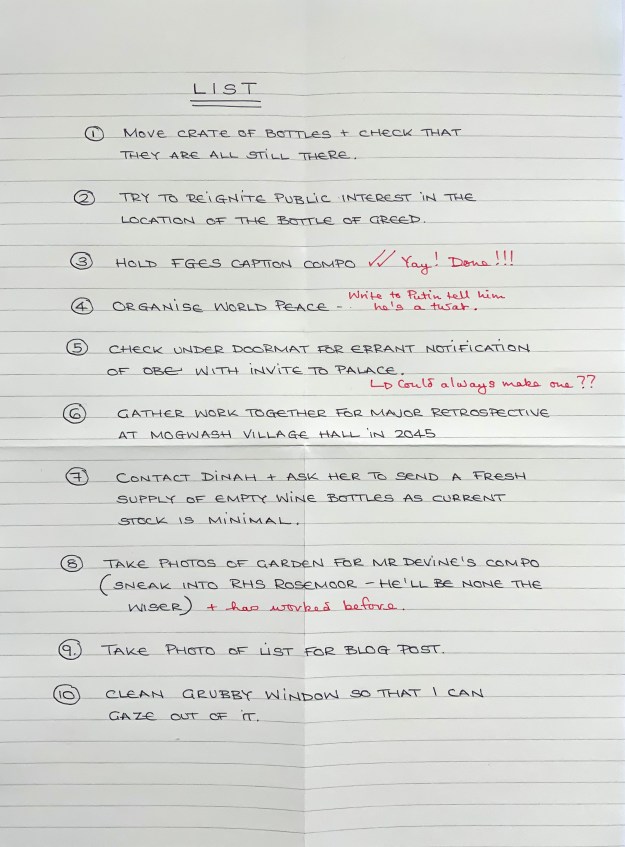 LIST
① MOVE CRATE OF BOTTLES + CHECK THAT
THEY ARE ALL STILL THERE.
② TRY TO REIGNITE PUBLIC INTEREST IN THE
LOCATION OF THE BOTTLE OF GREED.
③ HOLD FGES CAPTION COMPO ✓✓ Yay! Done!!!
④ ORGANISE WORLD PEACE -- Write to Putin tell him
he's a twat.
⑤ CHECK UNDER DOORMAT FOR ERRANT NOTIFICATION
OF OBE WITH INVITE TO PALACE.
↳ Could always make one??
⑥ GATHER WORK TOGETHER FOR MAJOR RETROSPECTIVE
AT MOGWASH VILLAGE HALL IN 2045
⑦ CONTACT DINAH + ASK HER TO SEND A FRESH
SUPPLY OF EMPTY WINE BOTTLES AS CURRENT
STOCK IS MINIMAL.
⑧ TAKE PHOTOS OF GARDEN FOR MR DEVINE'S COMPO
(SNEAK INTO RHS ROSEMOOR - HE'LL BE NONE THE
WISER) + has worked before.
⑨. TAKE PHOTO OF LIST FOR BLOG POST.
⑩ CLEAN GRUBBY WINDOW SO THAT I CAN
GAZE OUT OF IT.